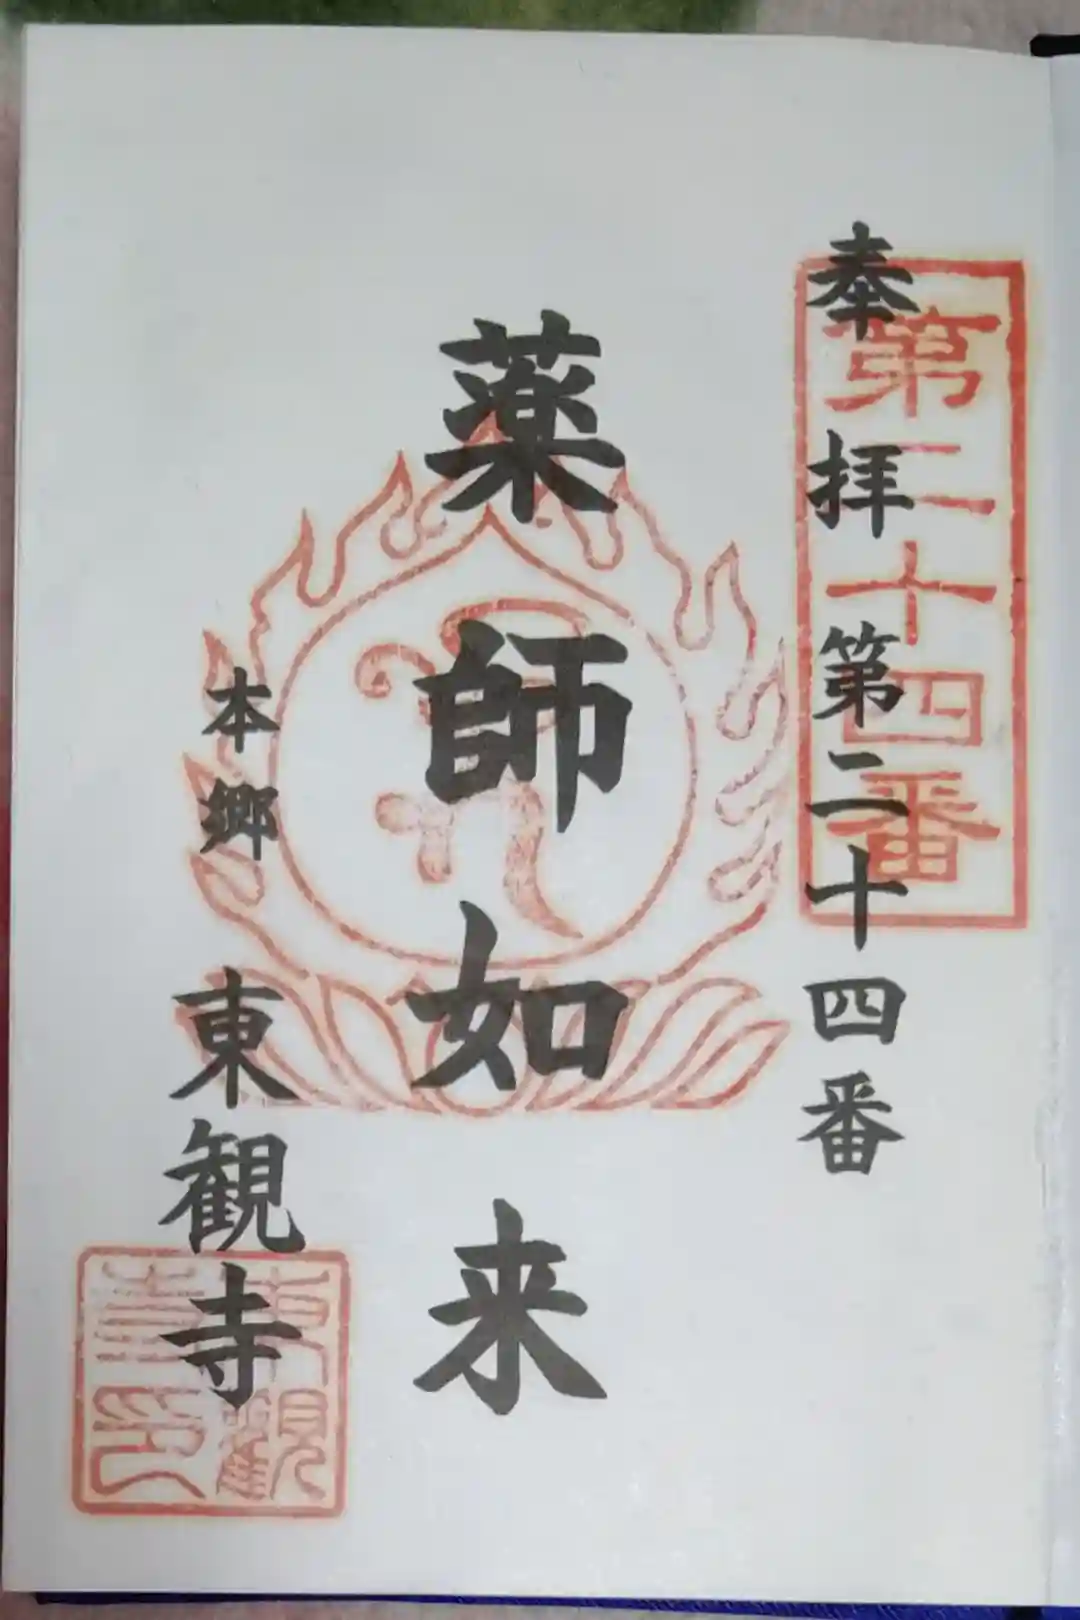 奉拝 第二十四番
第二十四番
薬師如来
本郷 東観寺
東観寺印